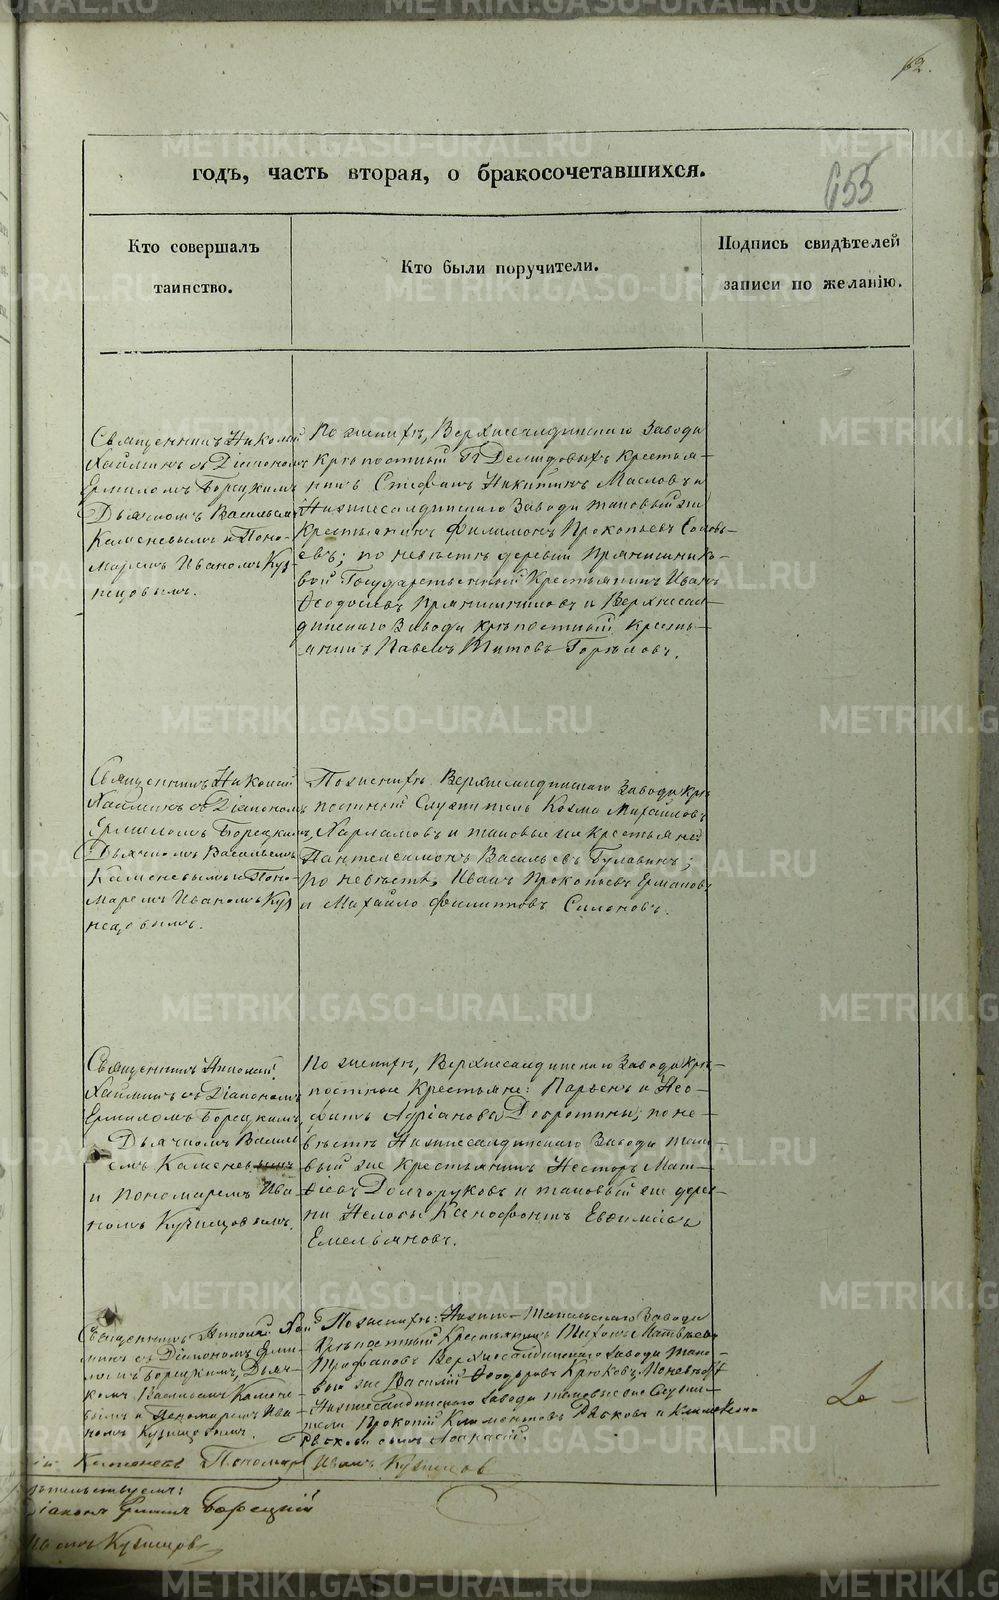 62.
655
годъ, часть вторая, о бракосочетавшихся.
Кто совершалъ
таинство.
Кто были поручители.
Подпись свидѣтелей
записи по желанію.
Священникъ Николай
Хаймикъ съ Діакономъ
Ермиломъ Борецкимъ
Дьячкомъ Васильемъ
Каменевымъ и Поно-
маремъ Иваномъ Куз
нецовымъ.
По женихѣ, Верхнесалдинскаго Завода
крѣпостный Гг Демидовыхъ крестья-
нинъ Стефанъ Никитинъ Масловъ и
Нижнесалдинскаго Завода таковый же
крестьянинъ Филимонъ Прокопьевъ Соловь-
евъ; по невѣстѣ деревни Прянишнико-
вой Государственный крестьянинъ Иванъ
Ѳеодосіевъ Прянишниковъ и Верхнесал-
динскаго Завода крѣпостный кресть-
янинъ Павелъ Титовъ Горѣловъ.
Священникъ Николай
Хаймикъ съ Діакономъ
Ермиломъ Борецкимъ,
Дьячкомъ Васильемъ
Каменевымъ и Поно-
маремъ Иваномъ Куз
нецовымъ.
По женихѣ Верхнесалдинскаго Завода крѣ
постный Служитель Козма Михайловъ
Харламовъ и таковый же крестьянинъ
Пантелеимонъ Васильевъ Булавинъ;
по невѣстѣ, Иванъ Прокопьевъ Ермаковъ
и Михайло Филипповъ Силоновъ.
Священникъ Николай
Хаймикъ съ Діакономъ
Ермиломъ Борецкимъ,
Дьячкомъ Василь
емъ Каменевымъ
и Пономаремъ Ива
номъ Кузнецовымъ.
По женихѣ, Верхнесалдинскаго Завода крѣ-
постные крестьяне: Парѳенъ и Нео-
фитъ Адріановы Добротины; по не-
вѣстѣ Нижнесалдинскаго Завода тако-
вый же крестьянинъ Несторъ Мат-
ѳіевъ Долгоруковъ и таковый же дерев-
ни Нелобы Ксенофонтъ Евѳиміевъ
Емельяновъ.
Священникъ Николай Хай
микъ съ Діакономъ Ерми-
ломъ Борецкимъ, Дьяч-
комъ Васильемъ Камене-
вымъ и Пономаремъ Ива
номъ Кузнецовымъ.
По женихѣ: Нижне-Тагильскаго Завода
крѣпостный крестьянинъ Тихонъ Матвѣевъ
Трофановъ Верхнесалдинскаго завода тако-
вый же Василій Ѳеодоровъ Крюковъ; По невѣстѣ
Нижнесалдинскаго завода таковые же Служи-
тели Прокопій Климонтовъ Рябковъ и
Рябкова сынъ Аѳанасій.
Каменевъ Пономарь Иванъ Кузнецовъ
Діаконъ Ермилъ Борецкій
Иванъ Кузнецовъ
METRIKI.GASO-URAL.RU